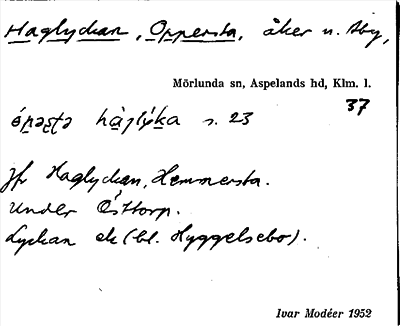 Haglyckan, Oppersta, åker n. Åby,
Mörlunda sn, Aspelands hd, Klm. l.
37
s. 23
Jfr Haglyckan, Hemmersta.
under Östtorp.
Lyckan ek (bl. Hyggelsebo).
Ivar Modéer 1952